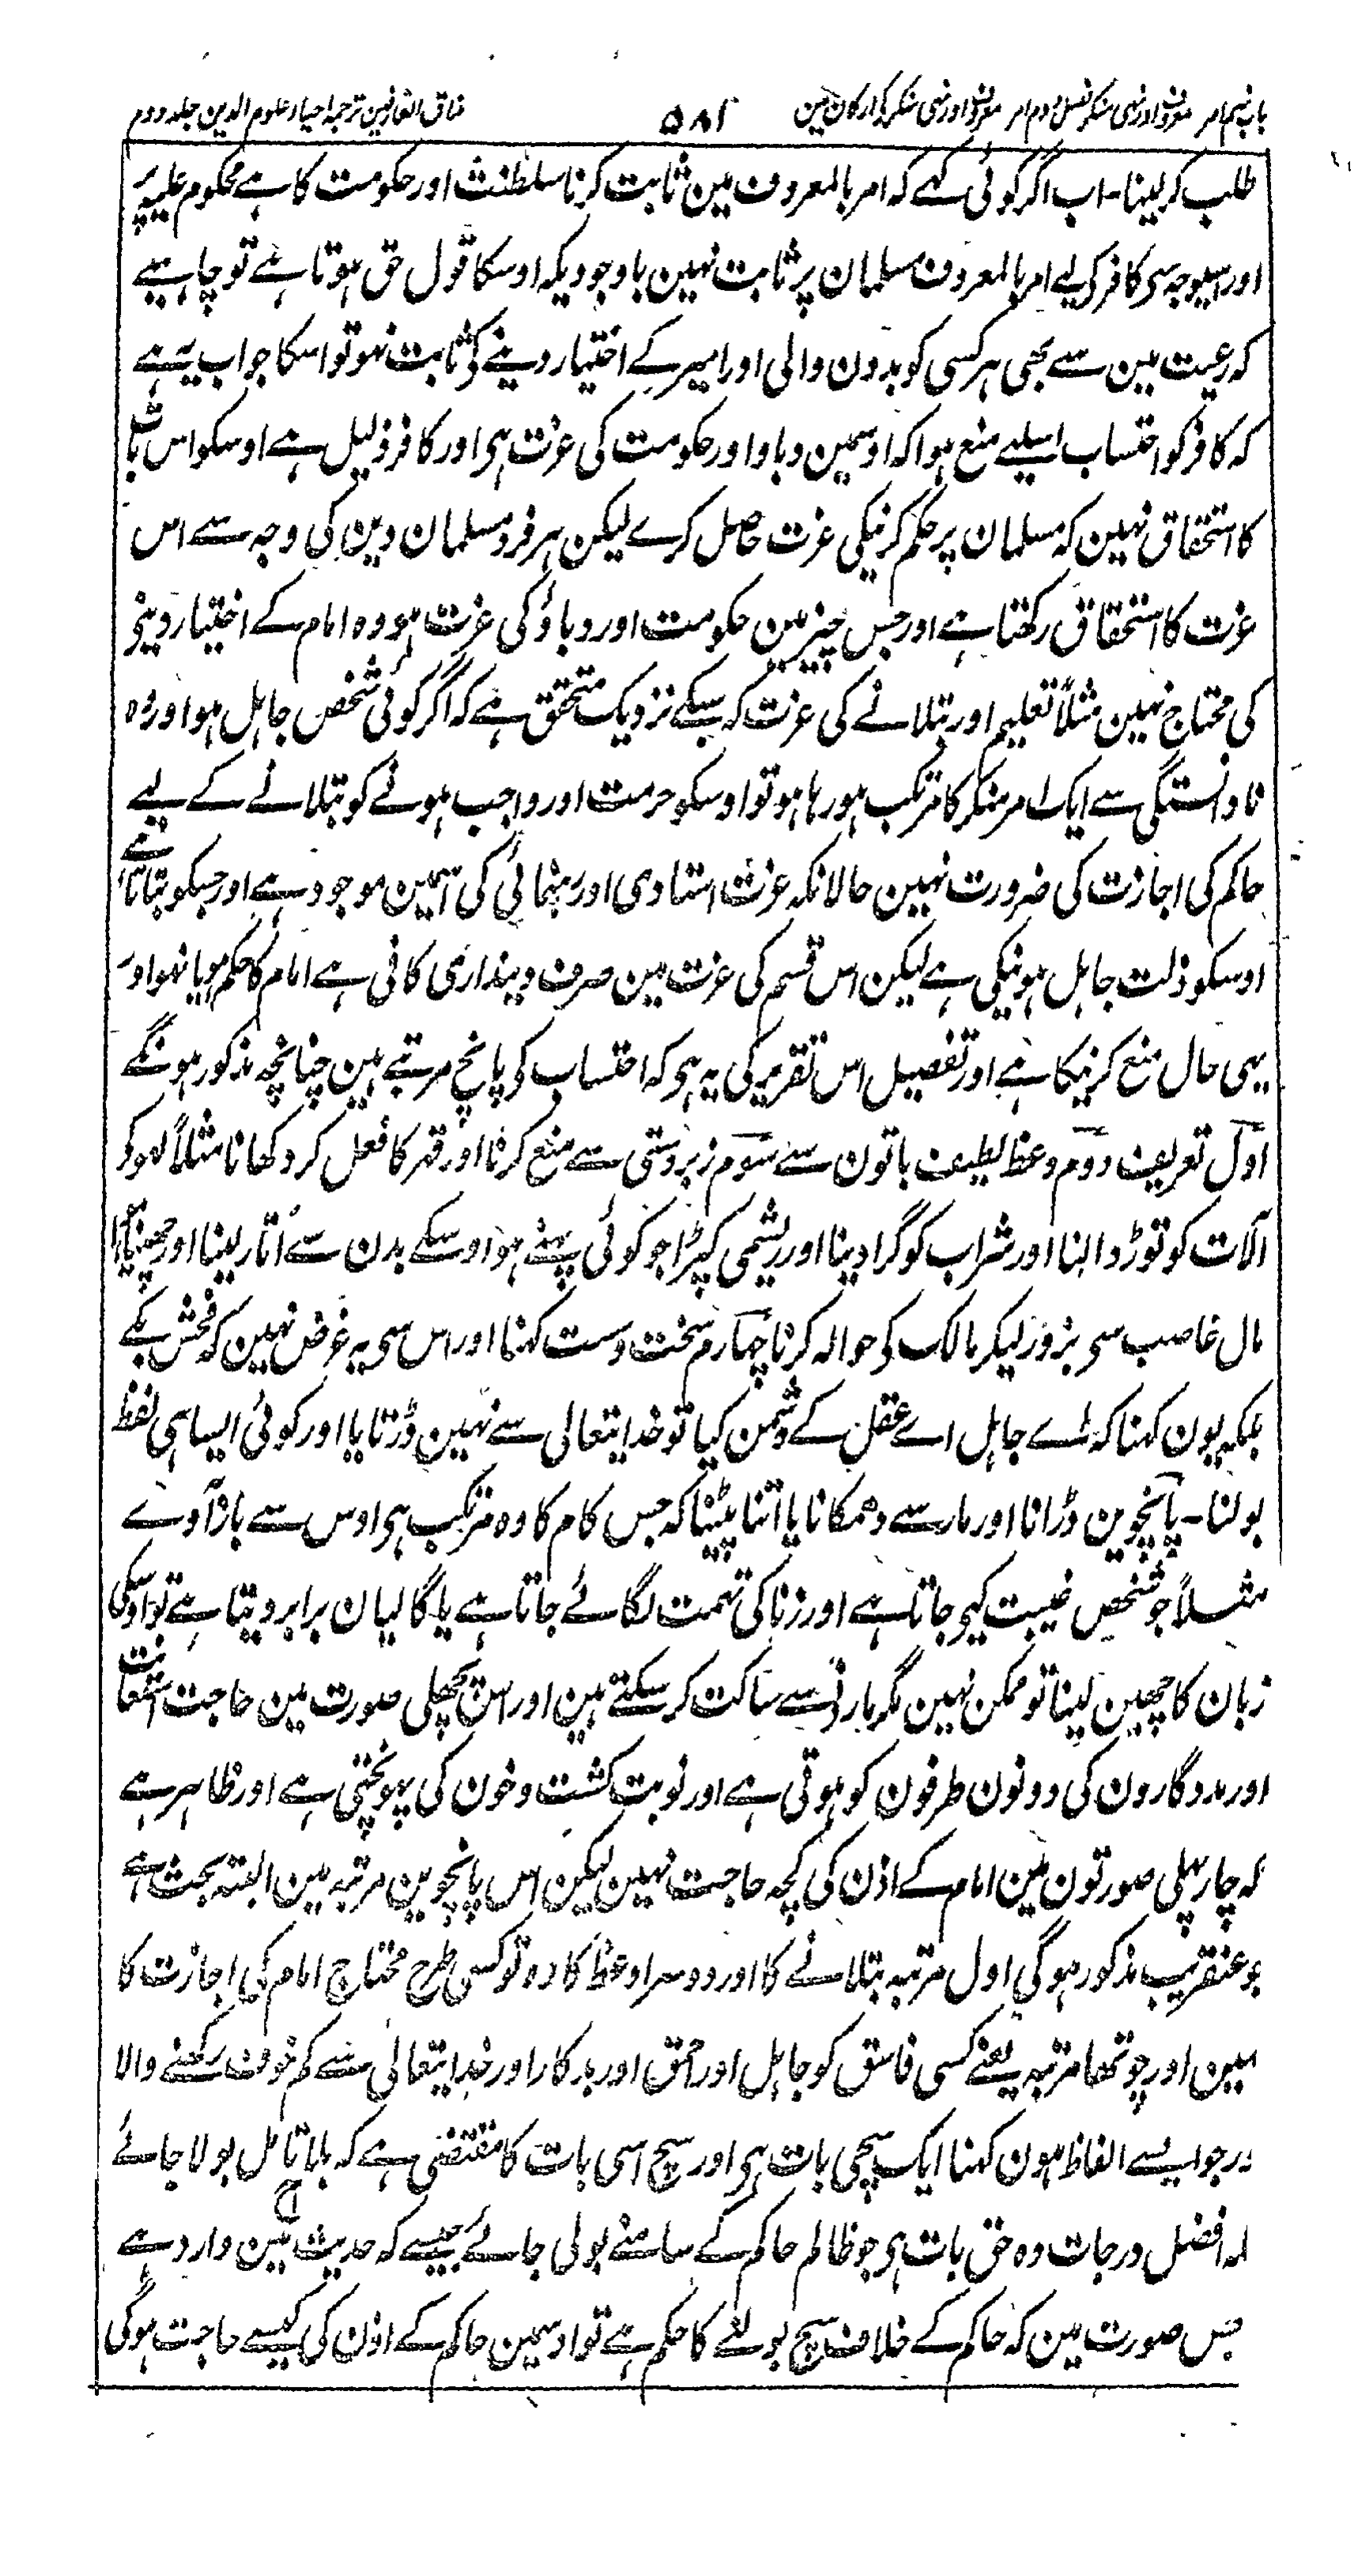 باب نہم امر معروف اور نہی منکر فصل دوم امر معروف اور نہی منکر کے ارکان مین
۵۸۲
مذاق العارفین ترجمہ احیاء علوم الدین جلد دوم
طلب کر لینا۔ اب اگر کوئی کہے کہ امر بالمعروف مین ثابت کرنا سلطنت اور حکومت کا ہے محکوم علیہ پر
اور اسیوجہ سی کافر کے لیے امر بالمعروف مسلمان پر ثابت نہین باوجودیکہ اوسکا قول حق ہوتا ہے تو چاہیے
کہ رعیت مین سے بھی ہر کسی کو بدون والی اور امیر کے اختیار دینے کے ثابت نہو تو اسکا جواب یہ ہے
کہ کافر کو احتساب اسلیے منع ہوا کہ اوسمین دباو اور حکومت کی عزت ہی اور کافر ذلیل ہے اوسکو اس بات
کا استحقاق نہین کہ مسلمان پر حکم کرنیکی عزت حاصل کرے لیکن ہر فرد مسلمان دین کی وجہ سے اس
عزت کا استحقاق رکھتا ہے اور جس چیز مین حکومت اور دباؤ کی عزت ہو وہ امام کے اختیار دینے
کی محتاج نہین مثلاً تعلیم اور بتلانے کی عزت کہ سبکے نزدیک متحقق ہے کہ اگر کوئی شخص جاہل ہو اور وہ
نادانستگی سے ایک امر منکر کا مرتکب ہو رہا ہو تو اوسکو حرمت اور واجب ہونے کو بتلانے کے لیے
حاکم کی اجازت کی ضرورت نہین حالانکہ عزت استادی اور رہنمائی کی اسمین موجود ہے اور جسکو بتاتا ہے
اوسکو ذلت جاہل ہونیکی ہے لیکن اس قسم کی عزت مین صرف دینداری کافی ہے امام کا حکم ہو یا نہو اور
یہی حال منع کرنیکا ہے اور تفصیل اس تقریر کی یہ ہی کہ احتساب کے پانچ مرتبے ہین چنانچہ مذکور ہونگے
اول تعریف دوم وعظ لطیف باتون سے سوم زبردستی سے منع کرنا اور قہر کا فعل کر دکھانا مثلاً لہو کے
آلات کو توڑ ڈالنا اور شراب کو گرا دینا اور ریشمی کپڑا جو کوئی پہنے ہو اوسکے بدن سے اُتار لینا اور چھینا ہوا
مال غاصب سی بزور لیکر مالک کے حوالہ کرنا چہارم سخت سست کہنا اور اس سی یہ غرض نہین کہ فحش بکے
بلکہ یون کہنا کہ اے جاہل اے عقل کے دشمن کیا تو خدا یتعالی سے نہین ڈرتا یا اور کوئی ایسا ہی لفظ
بولنا۔ پانچوین ڈرانا اور مار سے دھمکانا یا اتنا پیٹنا کہ جس کام کا وہ مرتکب ہی اوس سے باز آوے
مثلاً جو شخص غیبت کیے جاتا ہے اور زنا کی تہمت لگائے جاتا ہے یا گالیان برابر دیتا ہے تو اوسکی
زبان کا چھین لینا تو ممکن نہین مگر مارنے سے ساکت کر سکتے ہین اور اس پچھلی صورت مین حاجت استعانت
اور مددگارون کی دونون طرفون کو ہوتی ہے اور نوبت کشت و خون کی پہونچتی ہے اور ظاہر ہے
کہ چار پہلی صورتون مین امام کے اذن کی کچھ حاجت نہین لیکن اس پانچوین مرتبہ مین البتہ بحث ہے
جو عنقریب مذکور ہوگی اول مرتبہ بتلانے کا اور دوسرا وعظ کا وہ تو کسی طرح محتاج امام کی اجازت کا
نہین اور چوتھا مرتبہ یعنے کسی فاسق کو جاہل اور احمق اور بدکار اور خدا یتعالی سے کم خوف رکھنے والا
اور جو ایسے الفاظ ہون کہنا ایک سچی بات ہی اور سچ اسی بات کا مقتضی ہے کہ بلا تامل بولا جائے
بلکہ افضل درجات وہ حق بات ہی جو ظالم حاکم کے سامنے بولی جائے جیسے کہ حدیث مین وارد ہے
جس صورت مین کہ حاکم کے خلاف سچ بولنے کا حکم ہے تو اوسمین حاکم کے اذن کی کیسے حاجت ہوگی